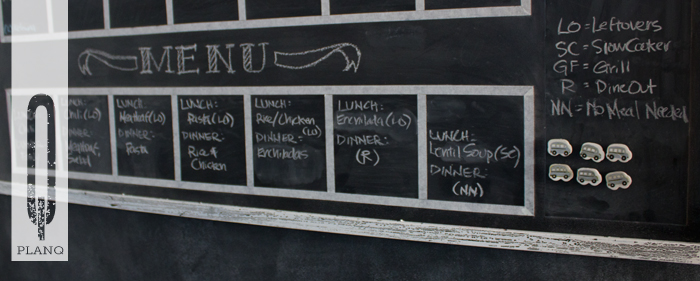 MENU
LO=Leftovers
SC=SlowCooker
GF=Grill
R=DineOut
NN=No Meal Needed
LUNCH:
Chili(LO)
LUNCH:
DINNER:
Pasta
LUNCH:
Pasta(LO)
DINNER:
Rice &
Chicken
LUNCH:
Rice/Chicken
(LO)
DINNER:
Enchiladas
LUNCH:
Enchilada(LO)
DINNER:
(R)
LUNCH:
Lentil Soup(SC)
DINNER:
(NN)
PLANQ